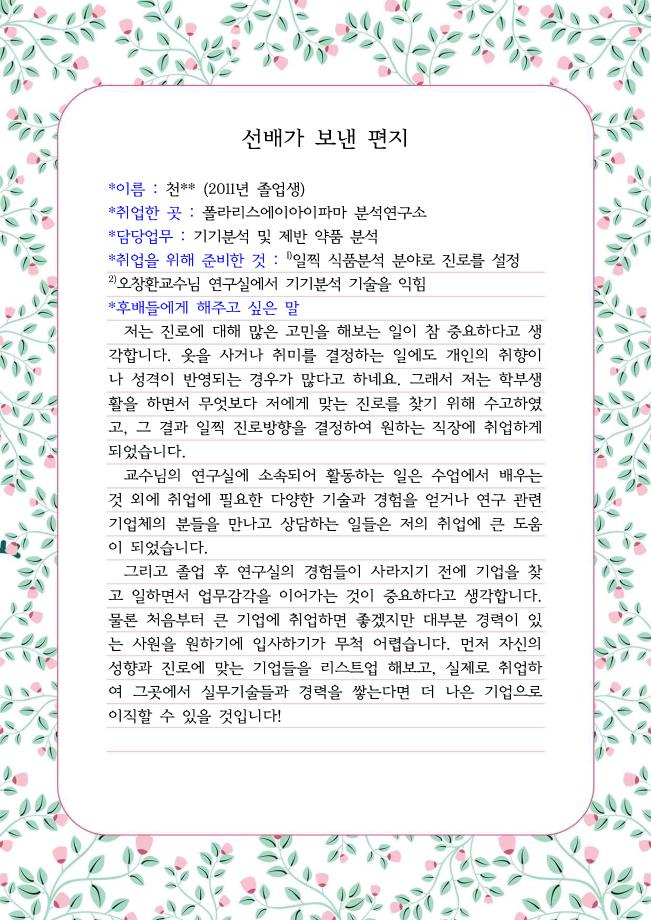 선배가 보낸 편지
*이름 : 천** (2011년 졸업생)
*취업한 곳 : 폴라리스에이아이파마 분석연구소
*담당업무 : 기기분석 및 제반 약품 분석
*취업을 위해 준비한 것 : 1)일찍 식품분석 분야로 진로를 설정
2)오창환교수님 연구실에서 기기분석 기술을 익힘
*후배들에게 해주고 싶은 말
저는 진로에 대해 많은 고민을 해보는 일이 참 중요하다고 생
각합니다. 옷을 사거나 취미를 결정하는 일에도 개인의 취향이
나 성격이 반영되는 경우가 많다고 하네요. 그래서 저는 학부생
활을 하면서 무엇보다 저에게 맞는 진로를 찾기 위해 수고하였
고, 그 결과 일찍 진로방향을 결정하여 원하는 직장에 취업하게
되었습니다.
교수님의 연구실에 소속되어 활동하는 일은 수업에서 배우는
것 외에 취업에 필요한 다양한 기술과 경험을 얻거나 연구 관련
기업체의 분들을 만나고 상담하는 일들은 저의 취업에 큰 도움
이 되었습니다.
그리고 졸업 후 연구실의 경험들이 사라지기 전에 기업을 찾
고 일하면서 업무감각을 이어가는 것이 중요하다고 생각합니다.
물론 처음부터 큰 기업에 취업하면 좋겠지만 대부분 경력이 있
는 사원을 원하기에 입사하기가 무척 어렵습니다. 먼저 자신의
성향과 진로에 맞는 기업들을 리스트업 해보고, 실제로 취업하
여 그곳에서 실무기술들과 경력을 쌓는다면 더 나은 기업으로
이직할 수 있을 것입니다!